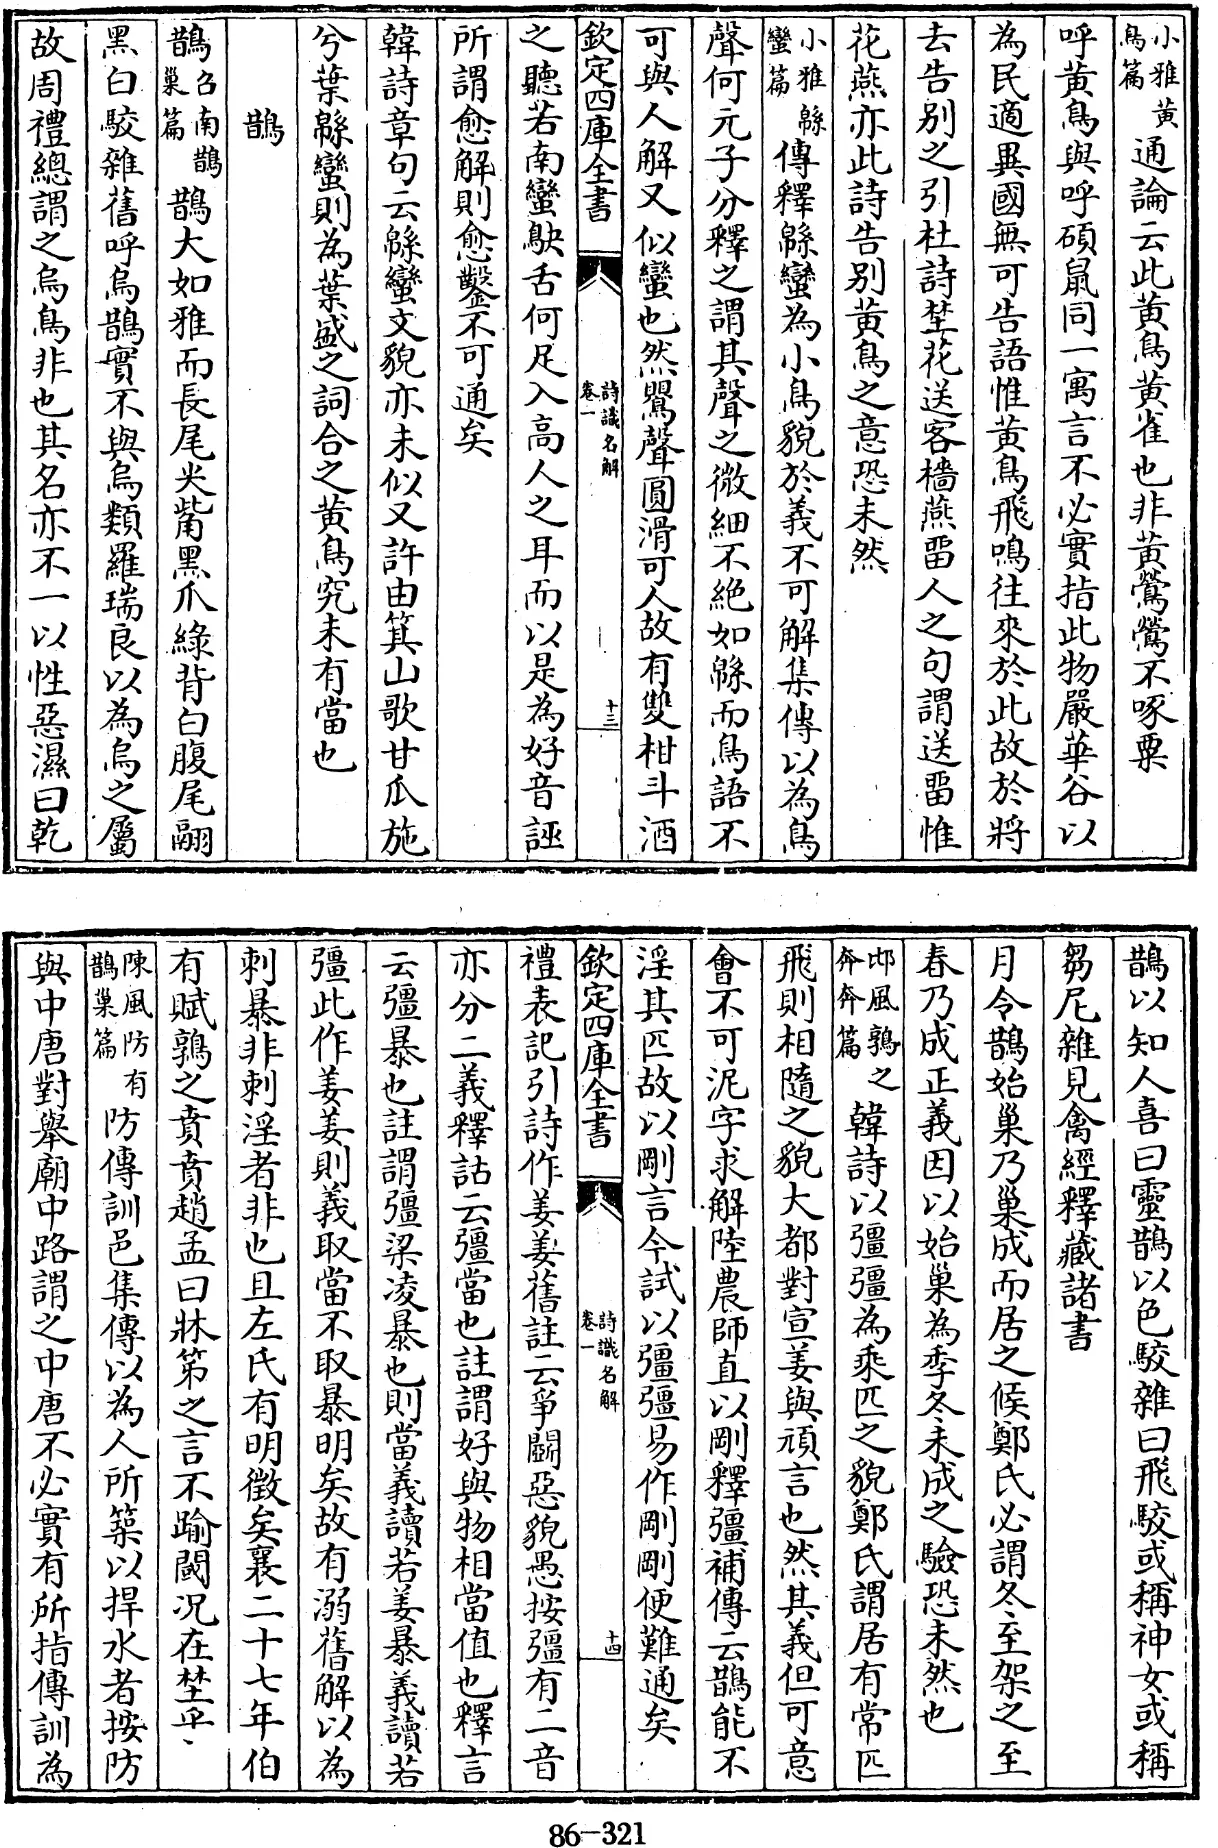 小雅黃鳥篇 通論云此黃鳥黃雀也非黃鶯鶯不啄粟
呼黃鳥與呼碩鼠同一寓言不必實指此物嚴華谷以
為民適異國無可告語惟黃鳥飛鳴往來於此故於將
去告别之引杜詩埜花送客檣燕畱人之句謂送畱惟
花燕亦此詩告别黃鳥之意恐未然
小雅緜蠻篇 傳釋緜蠻為小鳥貌於義不可解集傳以為鳥
聲何元子分釋之謂其聲之微細不絶如緜而鳥語不
可與人解又似蠻也然鸎聲圓滑可人故有雙柑斗酒
欽定四庫全書 詩識名解 卷一 十三
之聽若南蠻鴃舌何足入高人之耳而以是為好音誣
所謂愈解則愈鑿不可通矣
韓詩章句云緜蠻文貌亦未似又許由箕山歌甘瓜施
兮葉緜蠻則為葉盛之詞合之黃鳥究未有當也
鵲
召南鵲巢篇 鵲大如雅而長尾尖觜黑爪綠背白腹尾翮
黑白駮雜舊呼烏鵲實不與烏類羅瑞良以為烏之屬
故周禮總謂之烏鳥非也其名亦不一以性惡濕曰乾
鵲以知人喜曰靈鵲以色駮雜曰飛駮或稱神女或稱
芻尼雜見禽經釋藏諸書
月令鵲始巢乃巢成而居之候鄭氏必謂冬至架之至
春乃成正義因以始巢為季冬未成之驗恐未然也
邶風鶉之奔奔篇 韓詩以彊彊為乘匹之貌鄭氏謂居有常匹
飛則相隨之貌大都對宣姜與頑言也然其義但可意
會不可泥字求解陸農師直以剛釋彊補傳云鵲能不
淫其匹故以剛言今試以彊彊易作剛剛便難通矣
欽定四庫全書 詩識名解 卷一 十四
禮表記引詩作姜姜舊註云爭鬬惡貌愚按彊有二音
亦分二義釋詁云彊當也註謂好與物相當值也釋言
云彊暴也註謂彊梁凌暴也則當義讀若姜暴義讀若
彊此作姜姜則義取當不取暴明矣故有溺舊解以為
刺暴非刺淫者非也且左氏有明徵矣襄二十七年伯
有賦鶉之賁賁趙孟曰牀笫之言不踰閾况在埜乎
陳風防有鵲巢篇 防傳訓邑集傳以為人所築以捍水者按防
與中唐對舉廟中路謂之中唐不必實有所指傳訓為
86—321